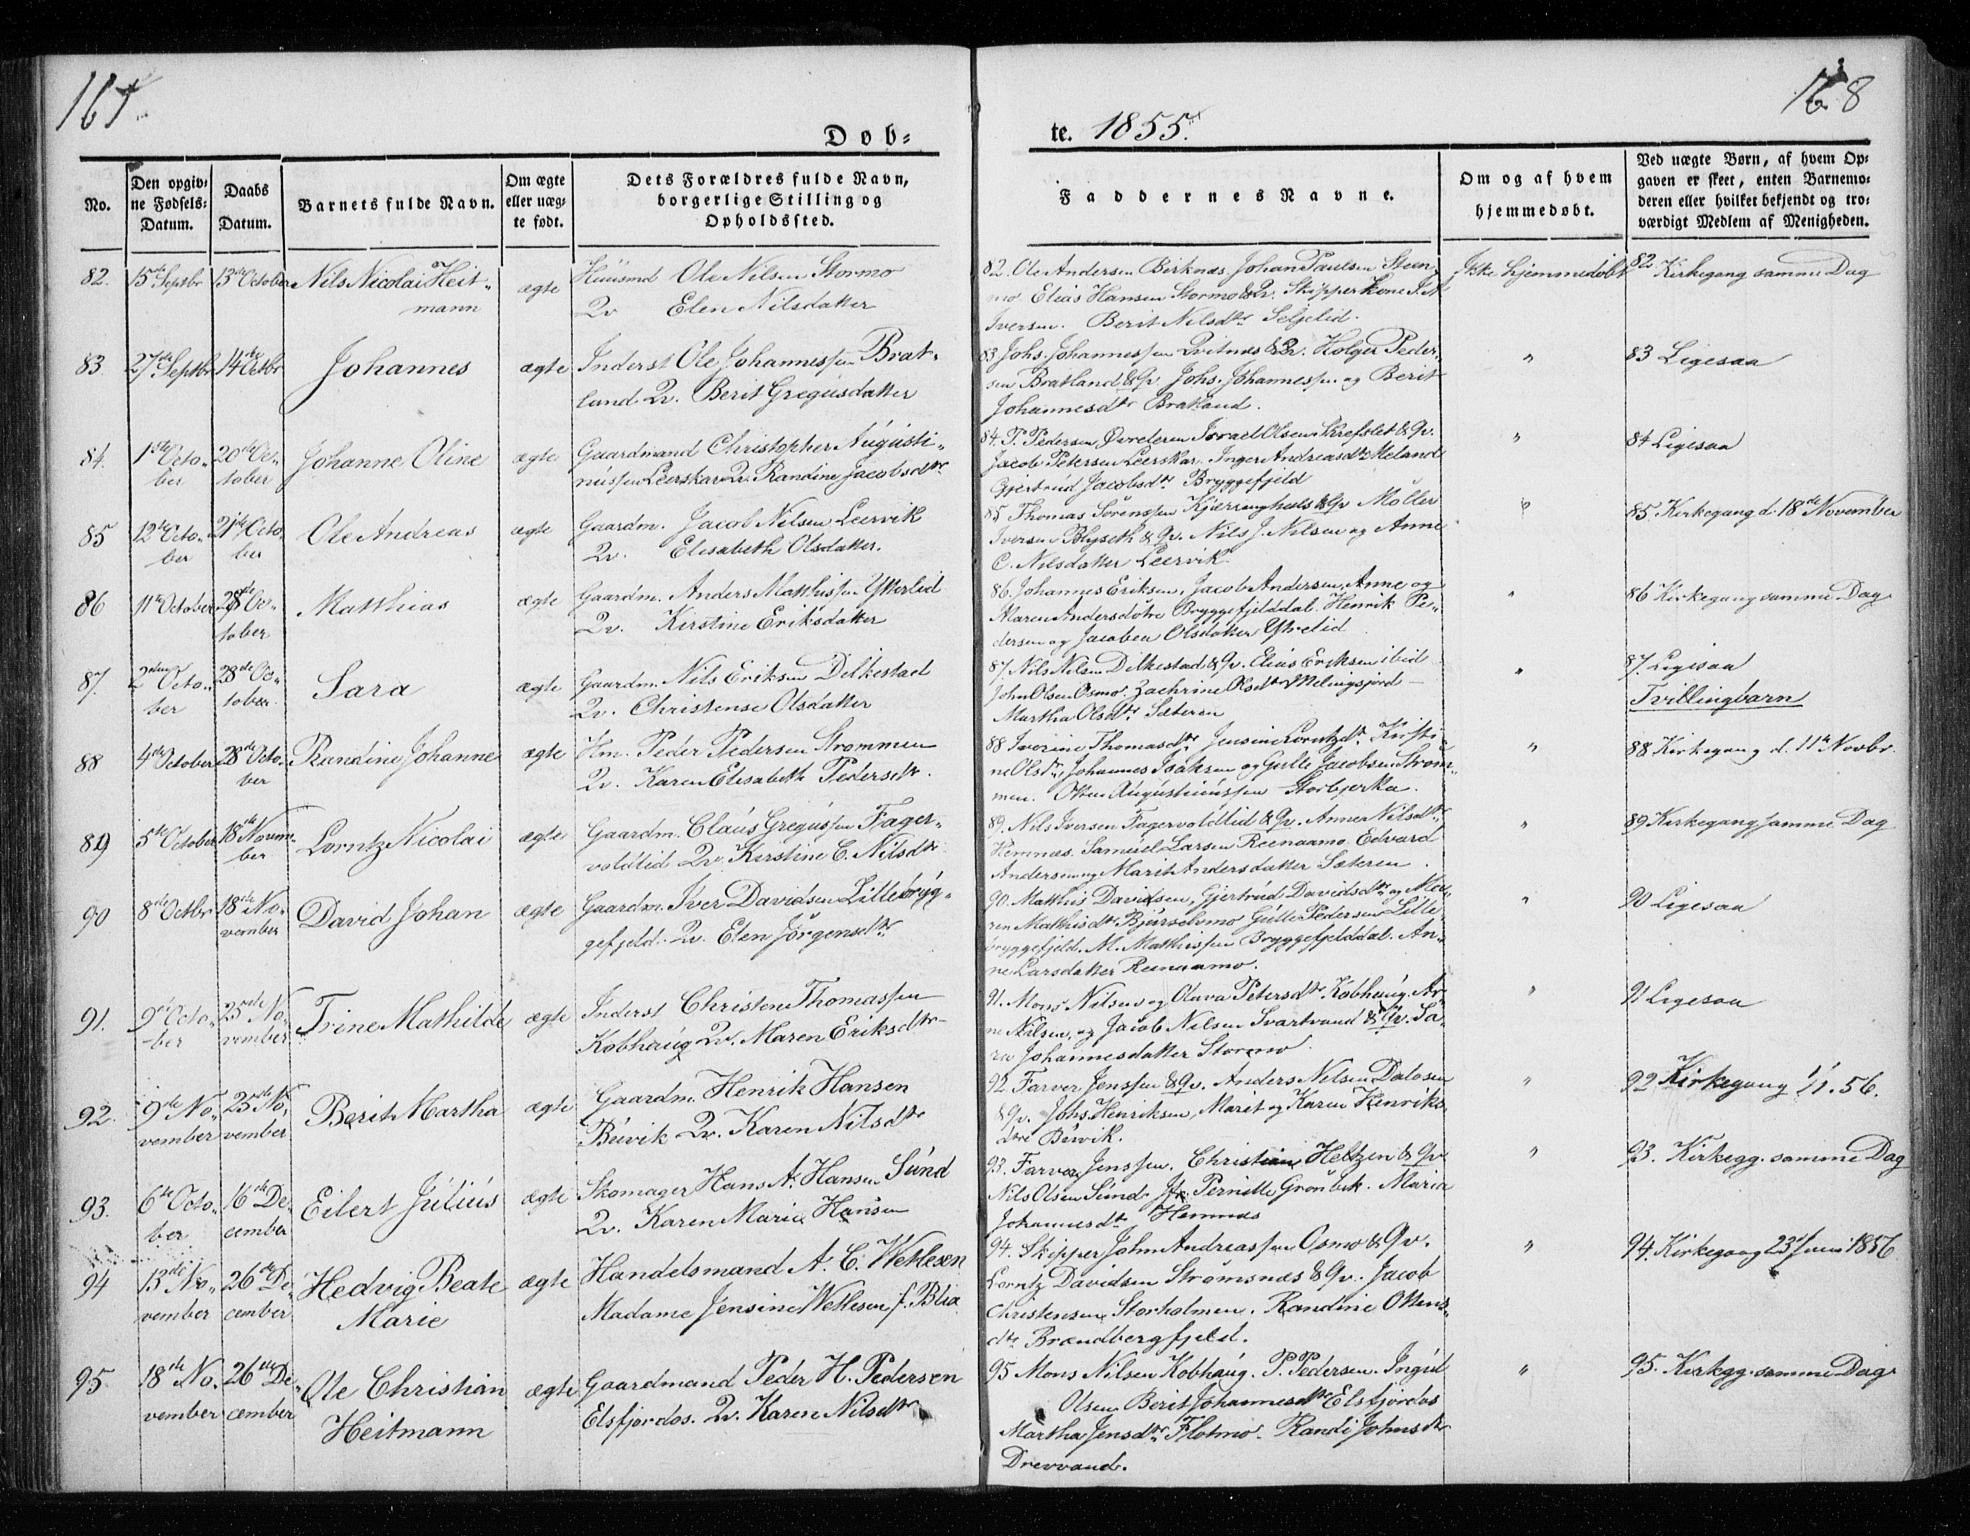 167.
168
Döb-
te. 1855.
No.
Den opgiv-
ne Fødsels-
Datum.
Daabs
Datum.
Barnets fulde Navn.
Om ægte
eller uæg-
te født.
Dets Forældres fulde Navn,
borgerlige Stilling og
Opholdssted.
Faddernes Navne.
Om og af hvem
hjemmedøbt.
Ved uægte Børn, af hvem Op-
gaven er skeet, enten Barnemo-
deren eller hvilket bekjendt og tro-
værdigt Medlem af Menigheden.
82. 15de Septbr 13de October Nils Nicolai Heit-
mann
ægte
Huusmd Ole Nilsen Stormo
Qv Elen Nilsdatter
82. Ole Andersen Birknæs, Johan Paulsen Steen-
mo Elias Hansen Stormo & Qv. Skipper Kone
Iversen. Berit Nilsdtr Seljelid.
Ikke hjemmedøbt
82. Kirkegang samme Dag
83. 27de Septbr 14de Octbr Johannes ægte
Inderst Ole Johannessen Brat-
land Qv. Berit Gregusdatter
83 Johs. Johannessen Qvitnæs & Qv. Holger Peder-
sen Bratland & Qv Johs. Johannessen og Berit
Johannesdtr Bratland.
"
83 Ligesaa
84. 1ste Octo-
ber
20de Oc-
tober
Johanne Oline ægte
Gaardmand Christopher Augusti-
nussen Leerskar Qv. Randine Jacobsdtr
84. P. Pedersen Øvreleren Israel Olsen Skrefslet & Qv.
Jacob Petersen Leerskar. Inger Andreasdtr Meland
Gjertrud Jacobsdtr Bryggefjeld
"
84 Ligesaa
85 12te Octo-
ber
21de Octo-
ber
Ole Andreas ægte
Gaardm. Jacob Nilsen Leervik
Qv. Elisabeth Olsdatter.
85 Thomas Sørenssen Kjæringhals & Qv Møller
Iversen Blyseth & Qv. Nils J. Nilsen og Anne
C. Nilsdatter Leervik
"
85 Kirkegang d. 18de November
86 11te October 28de Oc-
tober
Matthias ægte
Gaardm. Anders Matthissen Ytterlid
Qv. Kirstine Eriksdatter
86. Johannes Eriksen, Jacob Andersen, Anne og
Maren Andersdøtre Bryggefjelddal. Henrik Pe-
dersen og Jacobea Olsdatter Ytrelid
"
86 Kirkegang samme Dag
87. 2den Octo-
ber
28de Oc-
tober
Sara ægte
Gaardm. Nils Eriksen Dilkestad
Qv. Christense Olsdatter
87. Nils Nilsen Dilkestad & Qv. Elias Eriksen ibid
John Olsen Osmo. Zachrine Olsdtr Melingsjord
Martha Olsdtr Sæteren
"
87. Ligesaa
Tvillingbarn
88 4de October 28de Octo-
ber
Randine Johanne ægte
Hm. Peder Pedersen Strømmen
Qv. Karen Elisabeth Pedersdtr.
88 Iverine Thomasdtr Jensine Lorntzdtr. Kirsti-
ne Olsdtr, Johannes Isaksen og Gulle Jacobsen Strøm-
men. Otter Augustinussen Storbjerka.
"
88 Kirkegang d. 11te Novbr
89 5te October 18de Novem-
ber
Lorntz Nicolai ægte
Gaardm. Claus Gregussen Fager-
voldlid Qv. Kirstine C. Nilsdtr
89. Nils Iversen Fagervoldlid & Qv. Anne Nilsdtr
Hemnæs. Samuel Larsen Reenaamo. Edvard
Andersen og Marit Andersdatter Sæteren.
"
89 Kirkegang samme Dag
90 8de Octbr 18de No-
vember
David Johan ægte
Gaardm. Iver Davidsen Lillebryg-
gefjeld. Qv. Elen Jörgensdtr
90. Matthis Davidsen, Gjertrud Davidsdtr og Ma-
ren Mathisdtr Bjurselvmo Gulle Pedersen Lille-
bryggefjeld. M. Mathissen Bryggefjelddal. An-
ne Larsdatter Reenaamo.
"
90 Ligesaa
91. 9de Octo-
ber
25de No-
vember
Trine Mathilde ægte
Inderst Christen Thomassen
Kobhaug Qv. Maren Eriksdtr
91. Mons Nilsen og Olava Petersdtr Kobhaug. Ar-
ne Nilsen, og Jacob Nilsen Svartvand & Qv. Sa-
ra Johannesdatter Stormo.
"
91 Ligesaa
92. 9de No-
vember
25de No-
vember
Berit Martha ægte
Gaardm. Henrik Hansen
Beivik Qv. Karen Nilsdtr
92. Farver Jenssen & Qv. Anders Nilsen Dalosen
& Qv. Johs. Henriksen, Marit og Karen Henriks-
dtre Beivik.
"
92 Kirkegang 1/1. 56.
93. 6te Octo-
ber
16de De-
cember
Eilert Julius ægte
Skomager Hans A. Hansen Sund
Qv. Karen Marie Hansen
93. Farver Jenssen. Christian Heltzen & Qv
Nils Olsen Sund. Jfr. Pernille Grønbek. Maria
Johannesdtr Hemnæs
"
93. Kirkegg. samme Dag
94 13de No-
vember
26de De-
cember
Hedvig Beate
Marie
ægte
Handelsmand A. C. Wetlesen
Madame Jensine Wetlesen f. Blix
94. Skipper John Andreassen Osmo & Qv.
Lorntz Davidsen Strømsnæs & Qv. Jacob
Christensen Storholmen. Randine Ottars-
dtr Brændbergfjeld.
"
94. Kirkegang 23de Juni 1856
95. 18de No-
vember
26de De-
cember
Ole Christian
Heitmann
ægte
Gaardmand Peder H. Pedersen
Elsfjordos. Qv. Karen Nilsdtr
95 Mons Nilsen Kobhaug. P. Pedersen. Ingvl
Olsen Berit Johannesdtr Elsfjordos
Martha Jensdtr Flotmo. Randi Johnsdtr
Drevvand.
"
95. Kirkgg. samme Dag